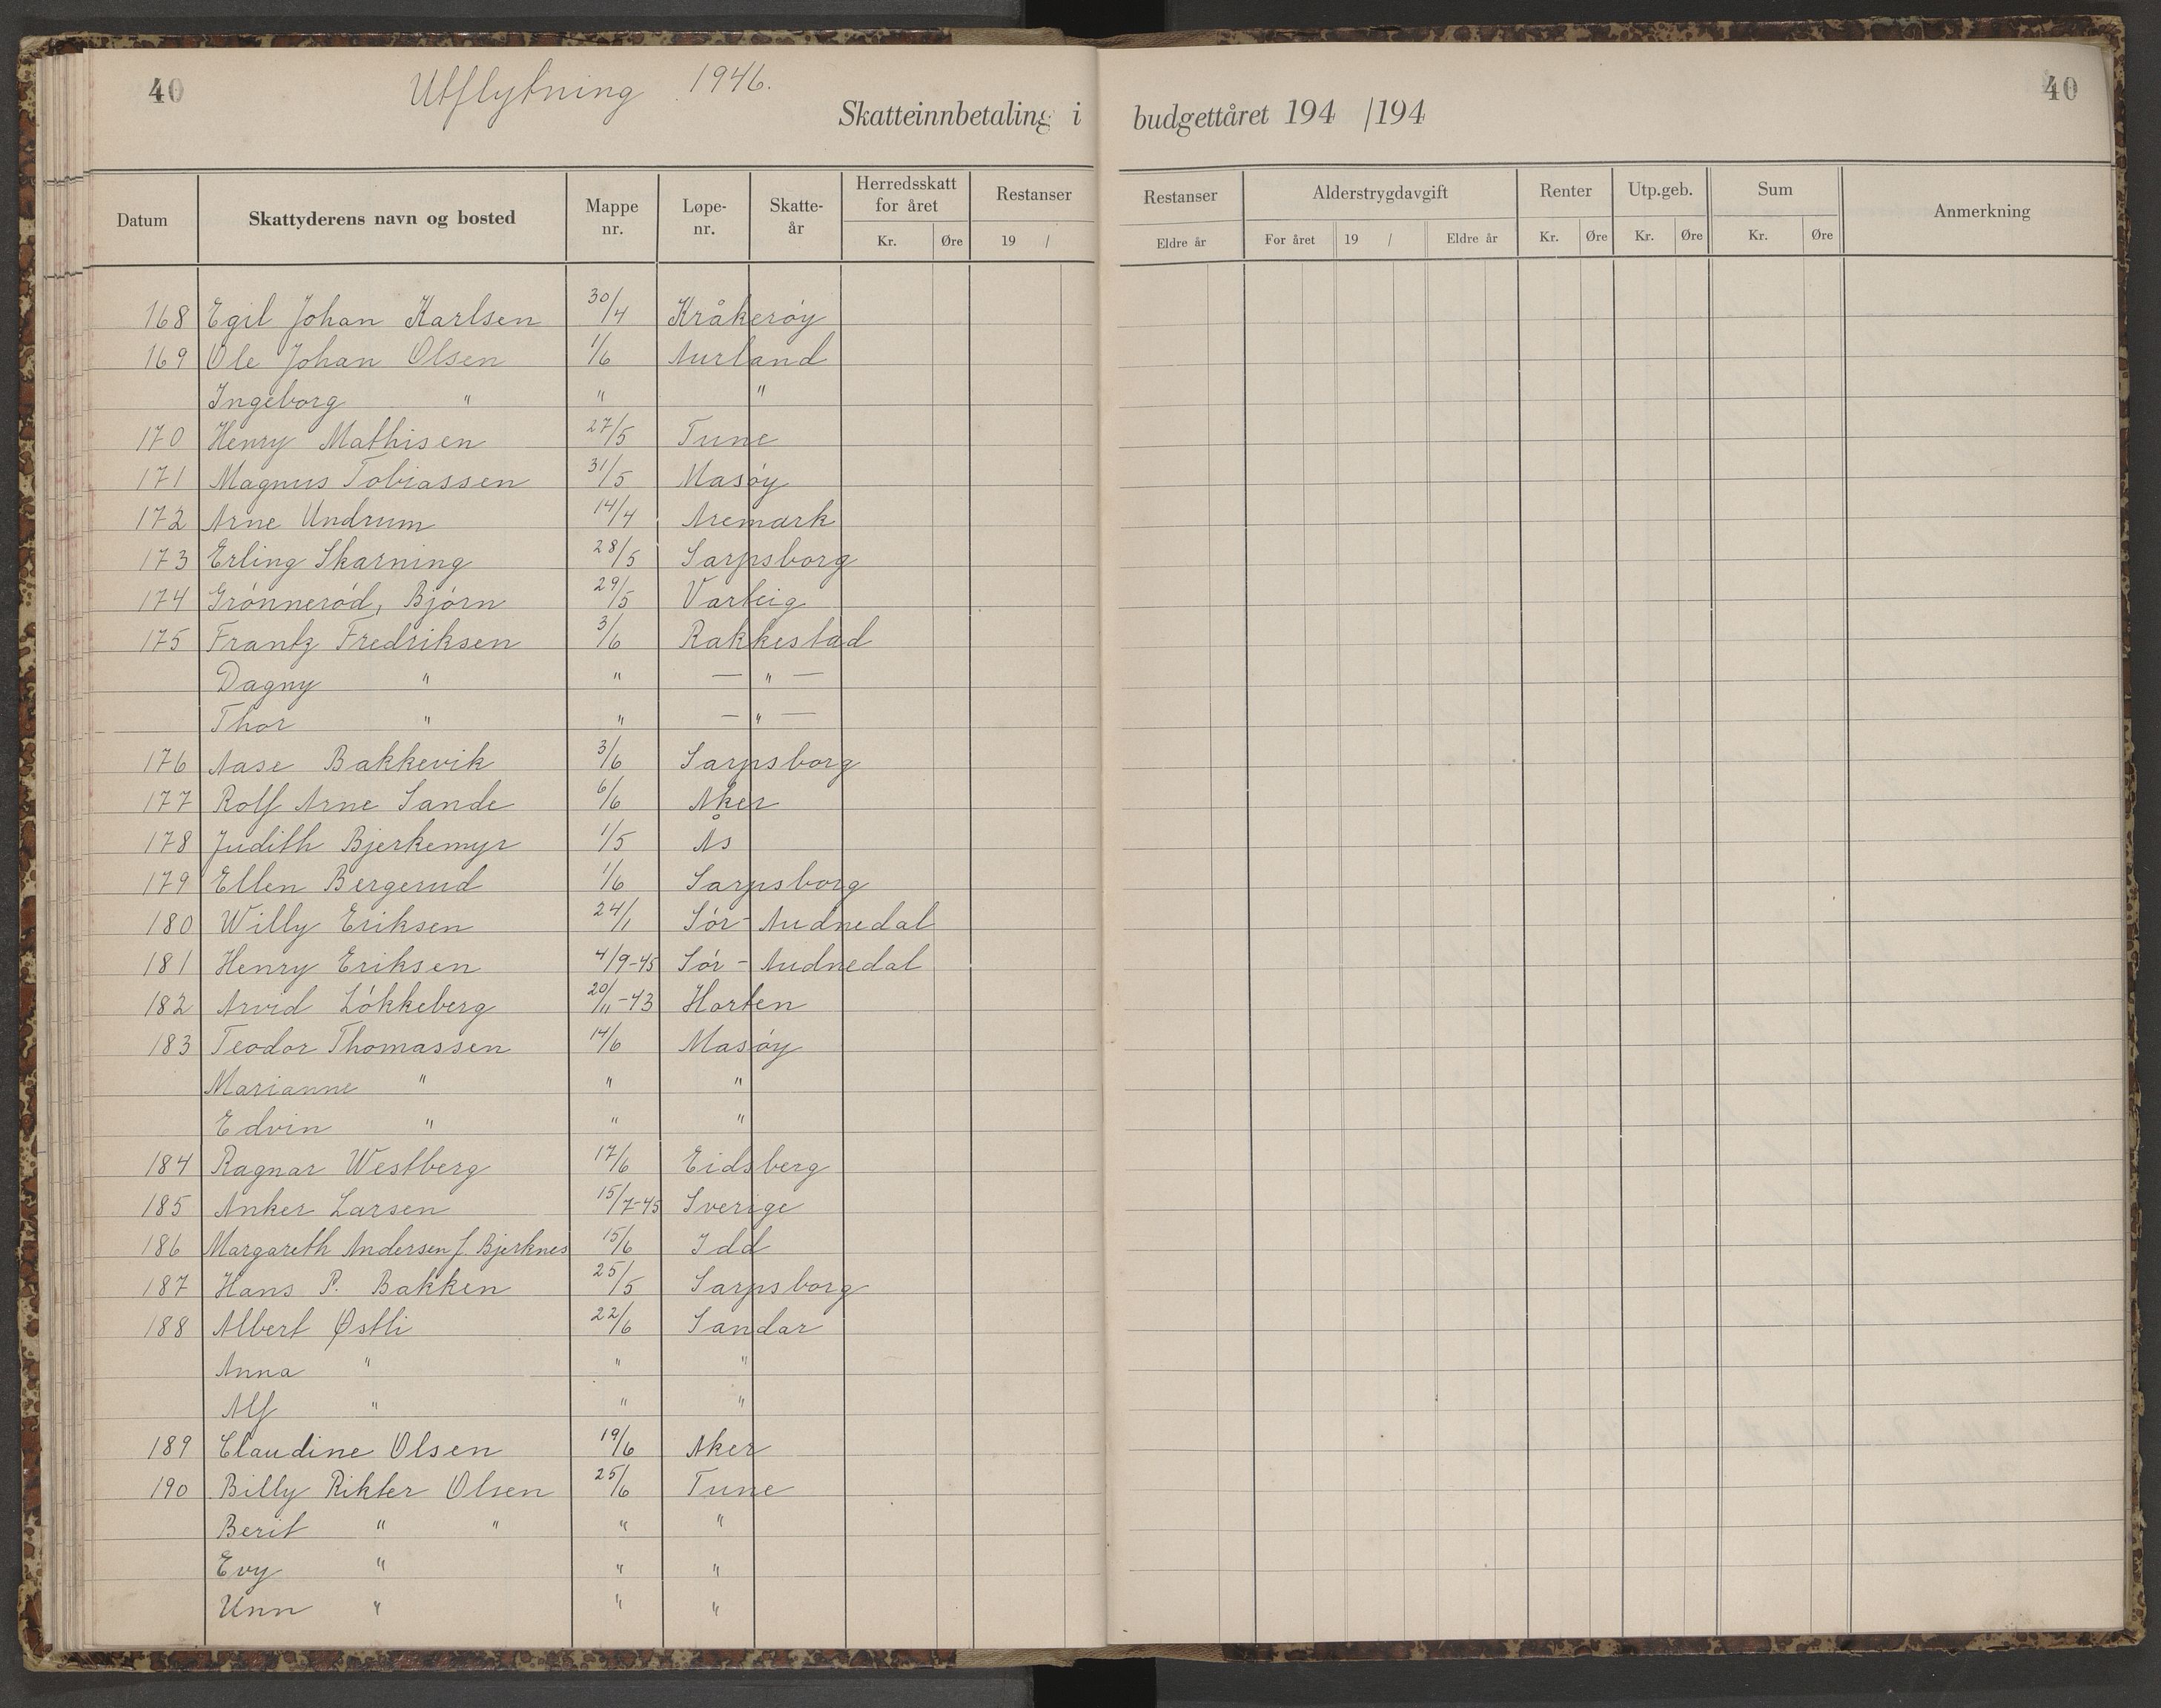 40 Utflytning 1946. 40
Skatteinnbetaling i budgettåret 194 /194
Datum Skattyderens navn og bosted Mappe nr. Løpe- nr. Skatte- år Herredsskatt for året Kr. Øre Restanser 19 / Restanser Eldre år Alderstrygdavgift For året 19 / Eldre år Renter Kr. Øre Utp.geb. Kr. Øre Sum Kr. Øre Anmerkning
168 Egil Johan Karlsen 30/4 Kråkerøy
169 Ole Johan Olsen 1/6 Aurland
Ingeborg " " "
170 Henry Mathisen 27/5 Tune
171 Magnus Tobiassen 31/5 Masøy
172 Arne Undrum 14/4 Aremark
173 Erling Skarning 28/5 Sarpsborg
174 Grønnerød, Bjørn 29/5 Varteig
175 Frantz Fredriksen 3/6 Rakkestad
Dagny " " — " —
Thor " " — " —
176 Aase Bakkevik 3/6 Sarpsborg
177 Rolf Arne Sande 6/6 Aker
178 Judith Bjerkemyr 1/5 Ås
179 Ellen Bergerud 1/6 Sarpsborg
180 Willy Eriksen 24/1 Sør-Audnedal
181 Henry Eriksen 4/9-45 Sør-Audnedal
182 Arvid Løkkeberg 20/11-43 Horten
183 Teodor Thomassen 14/6 Masøy
Marianne " " "
Edvin " " "
184 Ragnar Westberg 17/6 Eidsberg
185 Anker Larsen 15/7-45 Sverige
186 Margareth Andersen f. Bjerknes 15/6 Idd
187 Hans P. Bakken 25/5 Sarpsborg
188 Albert Østli 22/6 Sandar
Anna " " "
Alf " " "
189 Claudine Olsen 19/6 Aker
190 Billy Rikter Olsen 25/6 Tune
Berit " " " "
Evy " " "
Unn " " "